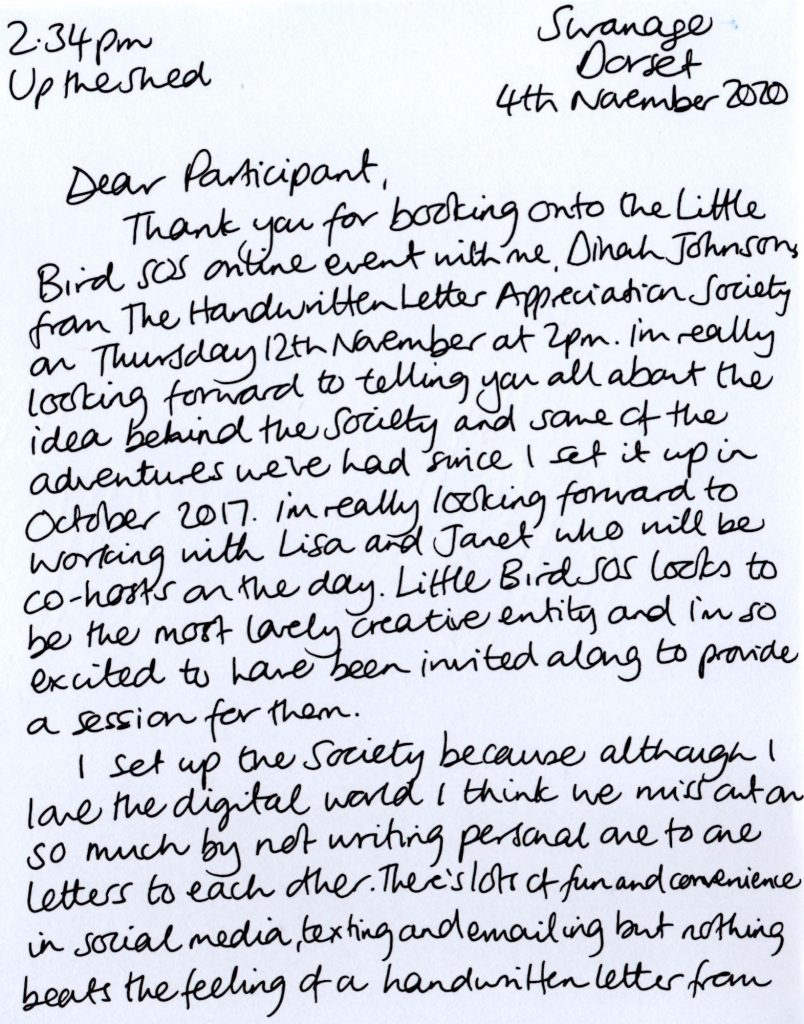 2:34pm
Up the shed
Swanage
Dorset
4th November 2020
Dear Participant,
Thank you for booking onto the Little
Bird SOS online event with me, Dinah Johnson,
from The Handwritten Letter Appreciation Society
on Thursday 12th November at 2pm. im really
looking forward to telling you all about the
idea behind the Society and some of the
adventures we've had since I set it up in
October 2017. im really looking forward to
working with Lisa and Janet who will be
co-hosts on the day. Little Bird SOS looks to
be the most lovely creative entity and i'm so
excited to have been invited along to provide
a session for them.
I set up the Society because although I
love the digital world I think we miss out on
so much by not writing personal one to one
letters to each other. There's lots of fun and convenience
in social media, texting and emailing but nothing
beats the feeling of a handwritten letter from